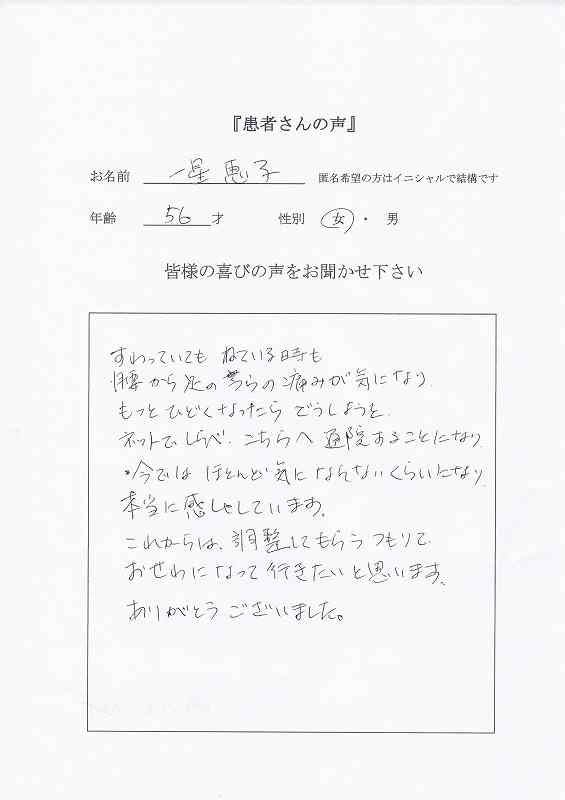 『患者さんの声』
お名前 一星 恵子 匿名希望の方はイニシャルで結構です
年齢 56 才 性別 女 ・ 男
皆様の喜びの声をお聞かせ下さい
すわっていても ねている時も
腰から足の うらの 痛みが気になり
もっと ひどくなったら どうしようと、
ネットで しらべ、こちらへ 通院することになり
今では ほとんど 気に ならないくらいになり
本当に 感しゃしています。
これからは、調整してもらう つもりで
おせわに なって 行きたい と思います。
ありがとう ございました。